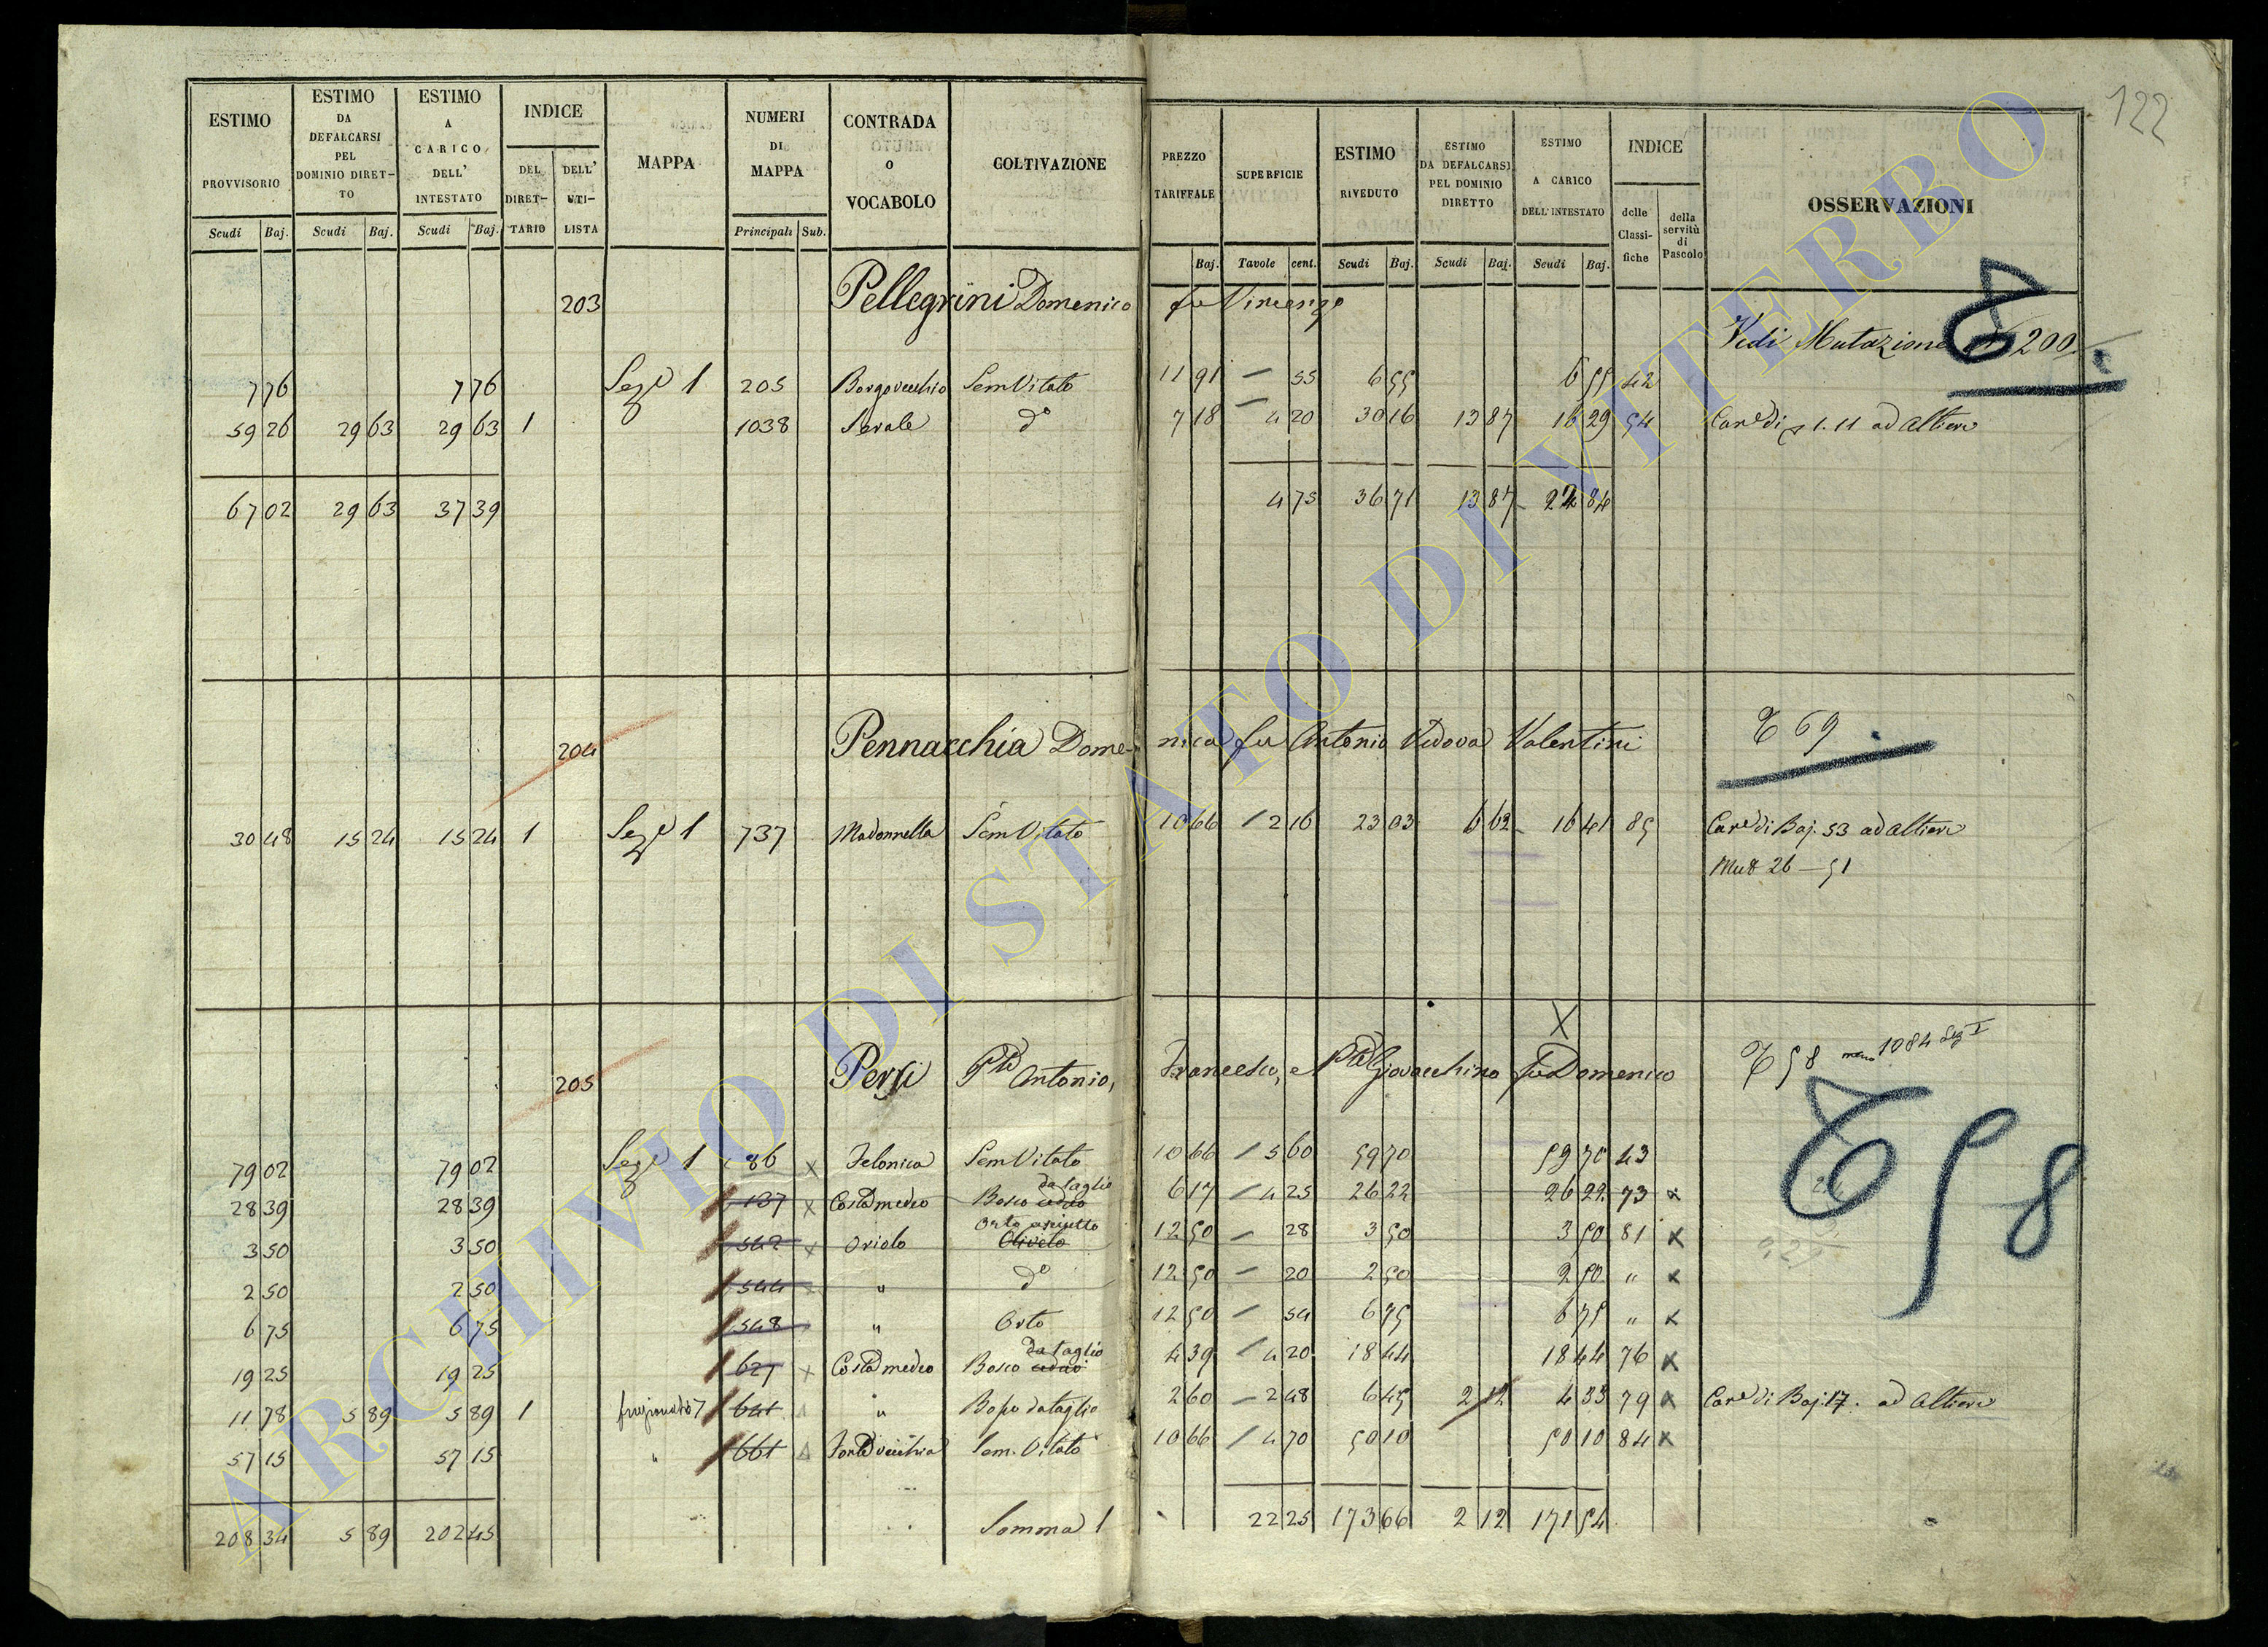 122
ESTIMO PROVVISORIO Scudi Baj.
ESTIMO DA DEFALCARSI PEL DOMINIO DIRETTO Scudi Baj.
ESTIMO A CARICO DELL' INTESTATO Scudi Baj.
INDICE DEL DIRETTARIO DELL' UTILISTA
MAPPA
NUMERI DI MAPPA Principali Sub.
CONTRADA o VOCABOLO
COLTIVAZIONE
PREZZO TARIFFALE Baj.
SUPERFICIE Tavole cent.
ESTIMO RIVEDUTO Scudi Baj.
ESTIMO DA DEFALCARSI PEL DOMINIO DIRETTO Scudi Baj.
ESTIMO A CARICO DELL' INTESTATO Scudi Baj.
INDICE delle Classifiche della servitù di Pascolo
OSSERVAZIONI
203 Pellegrini Domenico fu Vincenzo
Vedi Mutazione 200
7 76 7 76 Sez.e 1 205 Borgovecchio Sem Vitato 11 91 — 55 6 55 6 55 42
59 26 29 63 29 63 1 1038 do 7 18 — 4 20 30 16 13 87 16 29 54 Can.e di 1.11 ad Altieri
67 02 29 63 37 39 4 75 36 71 13 87 22 84
204 Pennacchia Domenica fu Antonio Vedova Valentini 69
30 48 15 24 15 24 1 Sez.e 1 737 Madonnella Sem Vitato 10 66 / 2 16 23 03 6 62 16 41 85 Can.e di Baj. 53 ad Altieri
Mut 26 — 51
205 Persi Antonio, Francesco, e Giovacchino fu Domenico X 58 meno 1084 Sez I
58
79 02 79 02 Sez.e 1 86 x Felonica Sem Vitato 10 66 / 5 60 59 70 59 70 43
28 39 28 39 137 x Costa medeo Bosco ceduo da taglio 6 17 / 4 25 26 22 26 22 73 x
3 50 3 50 542 x Oriolo Oliveto Orto asciutto 12 50 — 28 3 50 3 50 81 x
2 50 2 50 544 x " do 12 50 — 20 2 50 2 50 " x
6 75 6 75 548 " Orto 12 50 — 54 6 75 6 75 " x
19 25 19 25 627 x Costa medeo Bosco ceduo da taglio 4 39 / 4 20 18 44 18 44 76 x
11 78 5 89 5 89 1 641 " Bosco da taglio 2 60 — 2 48 6 45 2 12 4 33 79 x Can.e di Baj. 17. ad Altieri
57 15 57 15 " 661 Fonte vecchia Sem. Vitato 10 66 / 4 70 50 10 50 10 84 x
208 34 5 89 202 45 Somma 22 25 173 66 2 12 171 54
ARCHIVIO DI STATO DI VITERBO